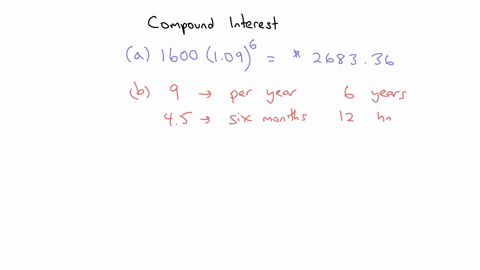 Compound Interest
(a) 1600 (1.09)^6 = * 2683.36
(b) 9 → per year 6 years
4.5 → six months 12 hn